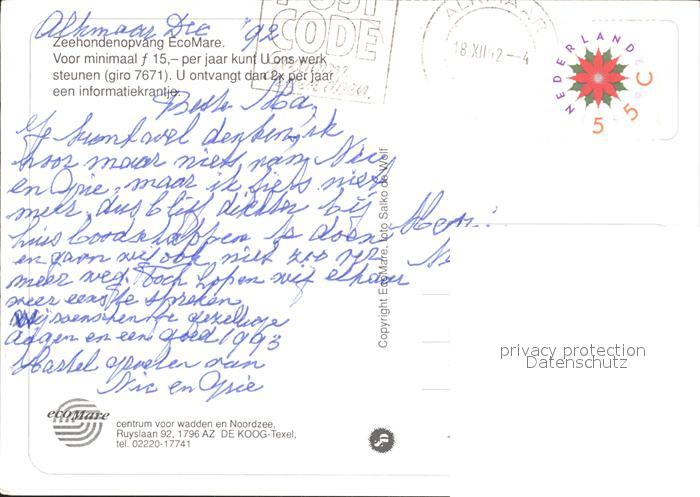 Alkmaar Dec '92
POST
CODE
ALKMAAR
18 XII 92 -4
NEDERLAND
55 C
Zeehondenopvang EcoMare.
Voor minimaal ƒ 15,– per jaar kunt U ons werk
steunen (giro 7671). U ontvangt dan 2x per jaar
een informatiekrantje.
Beste
Je kunt wel denken, ik
hoor maar niets van Nic
en Grie, maar ik fiets niet
meer, dus blijf dichter bij
huis boodschappen te doen
en gaan wij ook niet zoo ver
meer weg. Toch hopen wij elkaar
weer eens te spreken
Wij wenschen te gezellige
dagen en een goed 1993
Hartel groeten van
Nic en Grie
Copyright EcoMare, foto Salko de Wolf
ecomare
centrum voor wadden en Noordzee,
Ruyslaan 92, 1796 AZ DE KOOG-Texel,
tel. 02220-17741
privacy protection
Datenschutz